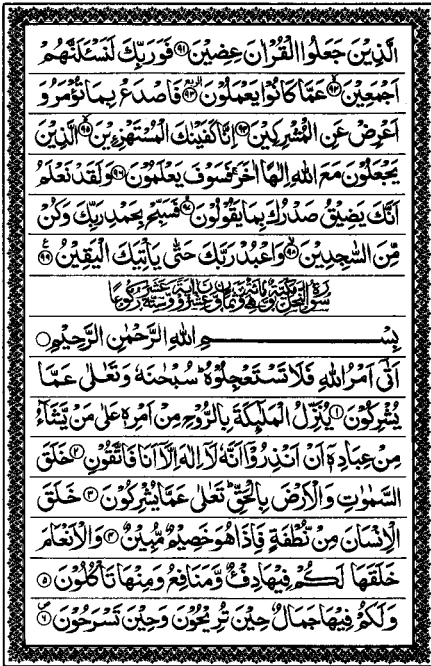 الَّذِيْنَ جَعَلُوا الْقُرْاٰنَ عِضِيْنَ ۝۹۱ فَوَرَبِّكَ لَنَسْـَٔلَنَّهُمْ
اَجْمَعِيْنَ ۝۹۲ عَمَّا كَانُوْا يَعْمَلُوْنَ ۝۹۳ فَاصْدَعْ بِمَا تُؤْمَرُ وَ
اَعْرِضْ عَنِ الْمُشْرِكِيْنَ ۝۹۴ اِنَّا كَفَيْنٰكَ الْمُسْتَهْزِءِيْنَ ۝۹۵ الَّذِيْنَ
يَجْعَلُوْنَ مَعَ اللّٰهِ اِلٰهًا اٰخَرَ ۚ فَسَوْفَ يَعْلَمُوْنَ ۝۹۶ وَلَقَدْ نَعْلَمُ
اَنَّكَ يَضِيْقُ صَدْرُكَ بِمَا يَقُوْلُوْنَ ۝۹۷ فَسَبِّحْ بِحَمْدِ رَبِّكَ وَكُنْ
مِّنَ السّٰجِدِيْنَ ۝۹۸ وَاعْبُدْ رَبَّكَ حَتّٰى يَاْتِيَكَ الْيَقِيْنُ ۝۹۹
بِسْمِ اللّٰهِ الرَّحْمٰنِ الرَّحِيْمِ
اَتٰٓى اَمْرُ اللّٰهِ فَلَا تَسْتَعْجِلُوْهُ ؕ سُبْحٰنَهٗ وَتَعٰلٰى عَمَّا
يُشْرِكُوْنَ ۝۱ يُنَزِّلُ الْمَلٰٓئِكَةَ بِالرُّوْحِ مِنْ اَمْرِهٖ عَلٰى مَنْ يَّشَآءُ
مِنْ عِبَادِهٖٓ اَنْ اَنْذِرُوْٓا اَنَّهٗ لَآ اِلٰهَ اِلَّآ اَنَا فَاتَّقُوْنِ ۝۲ خَلَقَ
السَّمٰوٰتِ وَالْاَرْضَ بِالْحَقِّ ؕ تَعٰلٰى عَمَّا يُشْرِكُوْنَ ۝۳ خَلَقَ
الْاِنْسَانَ مِنْ نُّطْفَةٍ فَاِذَا هُوَ خَصِيْمٌ مُّبِيْنٌ ۝۴ وَالْاَنْعَامَ
خَلَقَهَا ۚ لَكُمْ فِيْهَا دِفْءٌ وَّمَنَافِعُ وَمِنْهَا تَاْكُلُوْنَ ۝۵
وَلَكُمْ فِيْهَا جَمَالٌ حِيْنَ تُرِيْحُوْنَ وَحِيْنَ تَسْرَحُوْنَ ۝۶